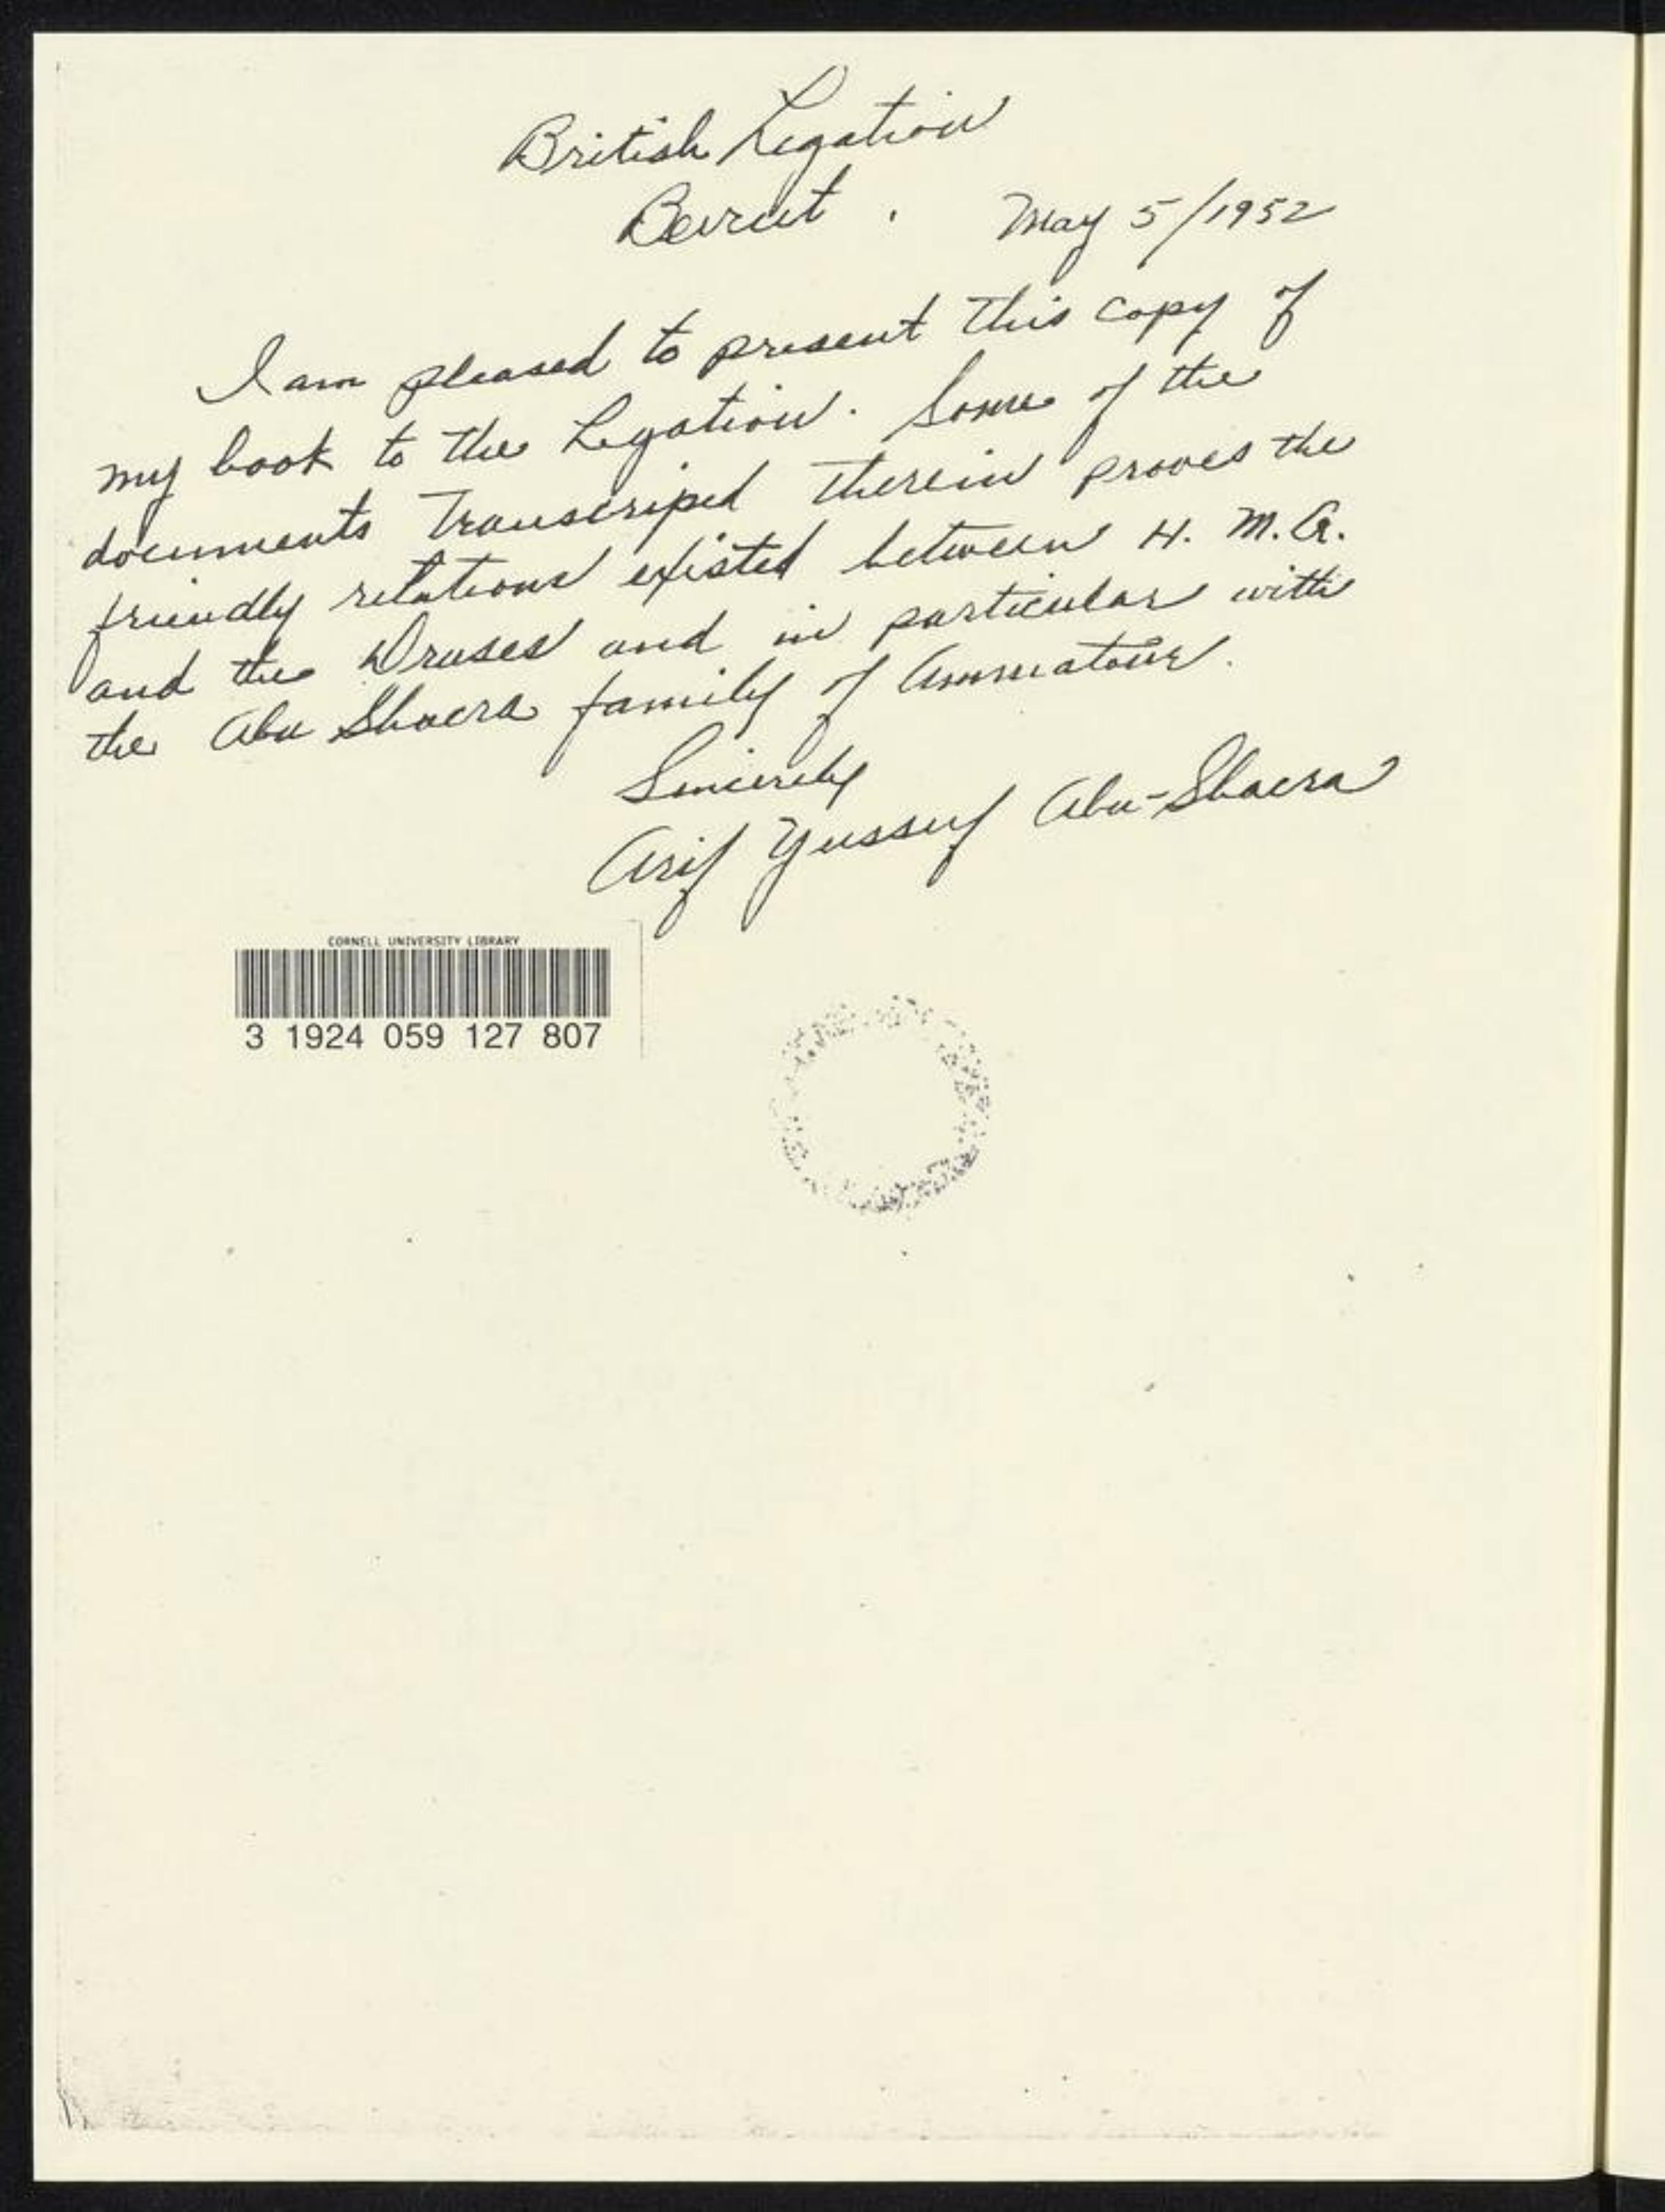 British Legation
Beirut . May 5/1952
I am pleased to present this copy of
my book to the Legation. Some of the
documents Transcriped therein proves the
friendly relations existed between H. M. G.
and the Druses and in particular with
the Abu Shacra family of Ammatour.
Sincerely
Arif Yussuf Abu-Shacra
CORNELL UNIVERSITY LIBRARY
3 1924 059 127 807